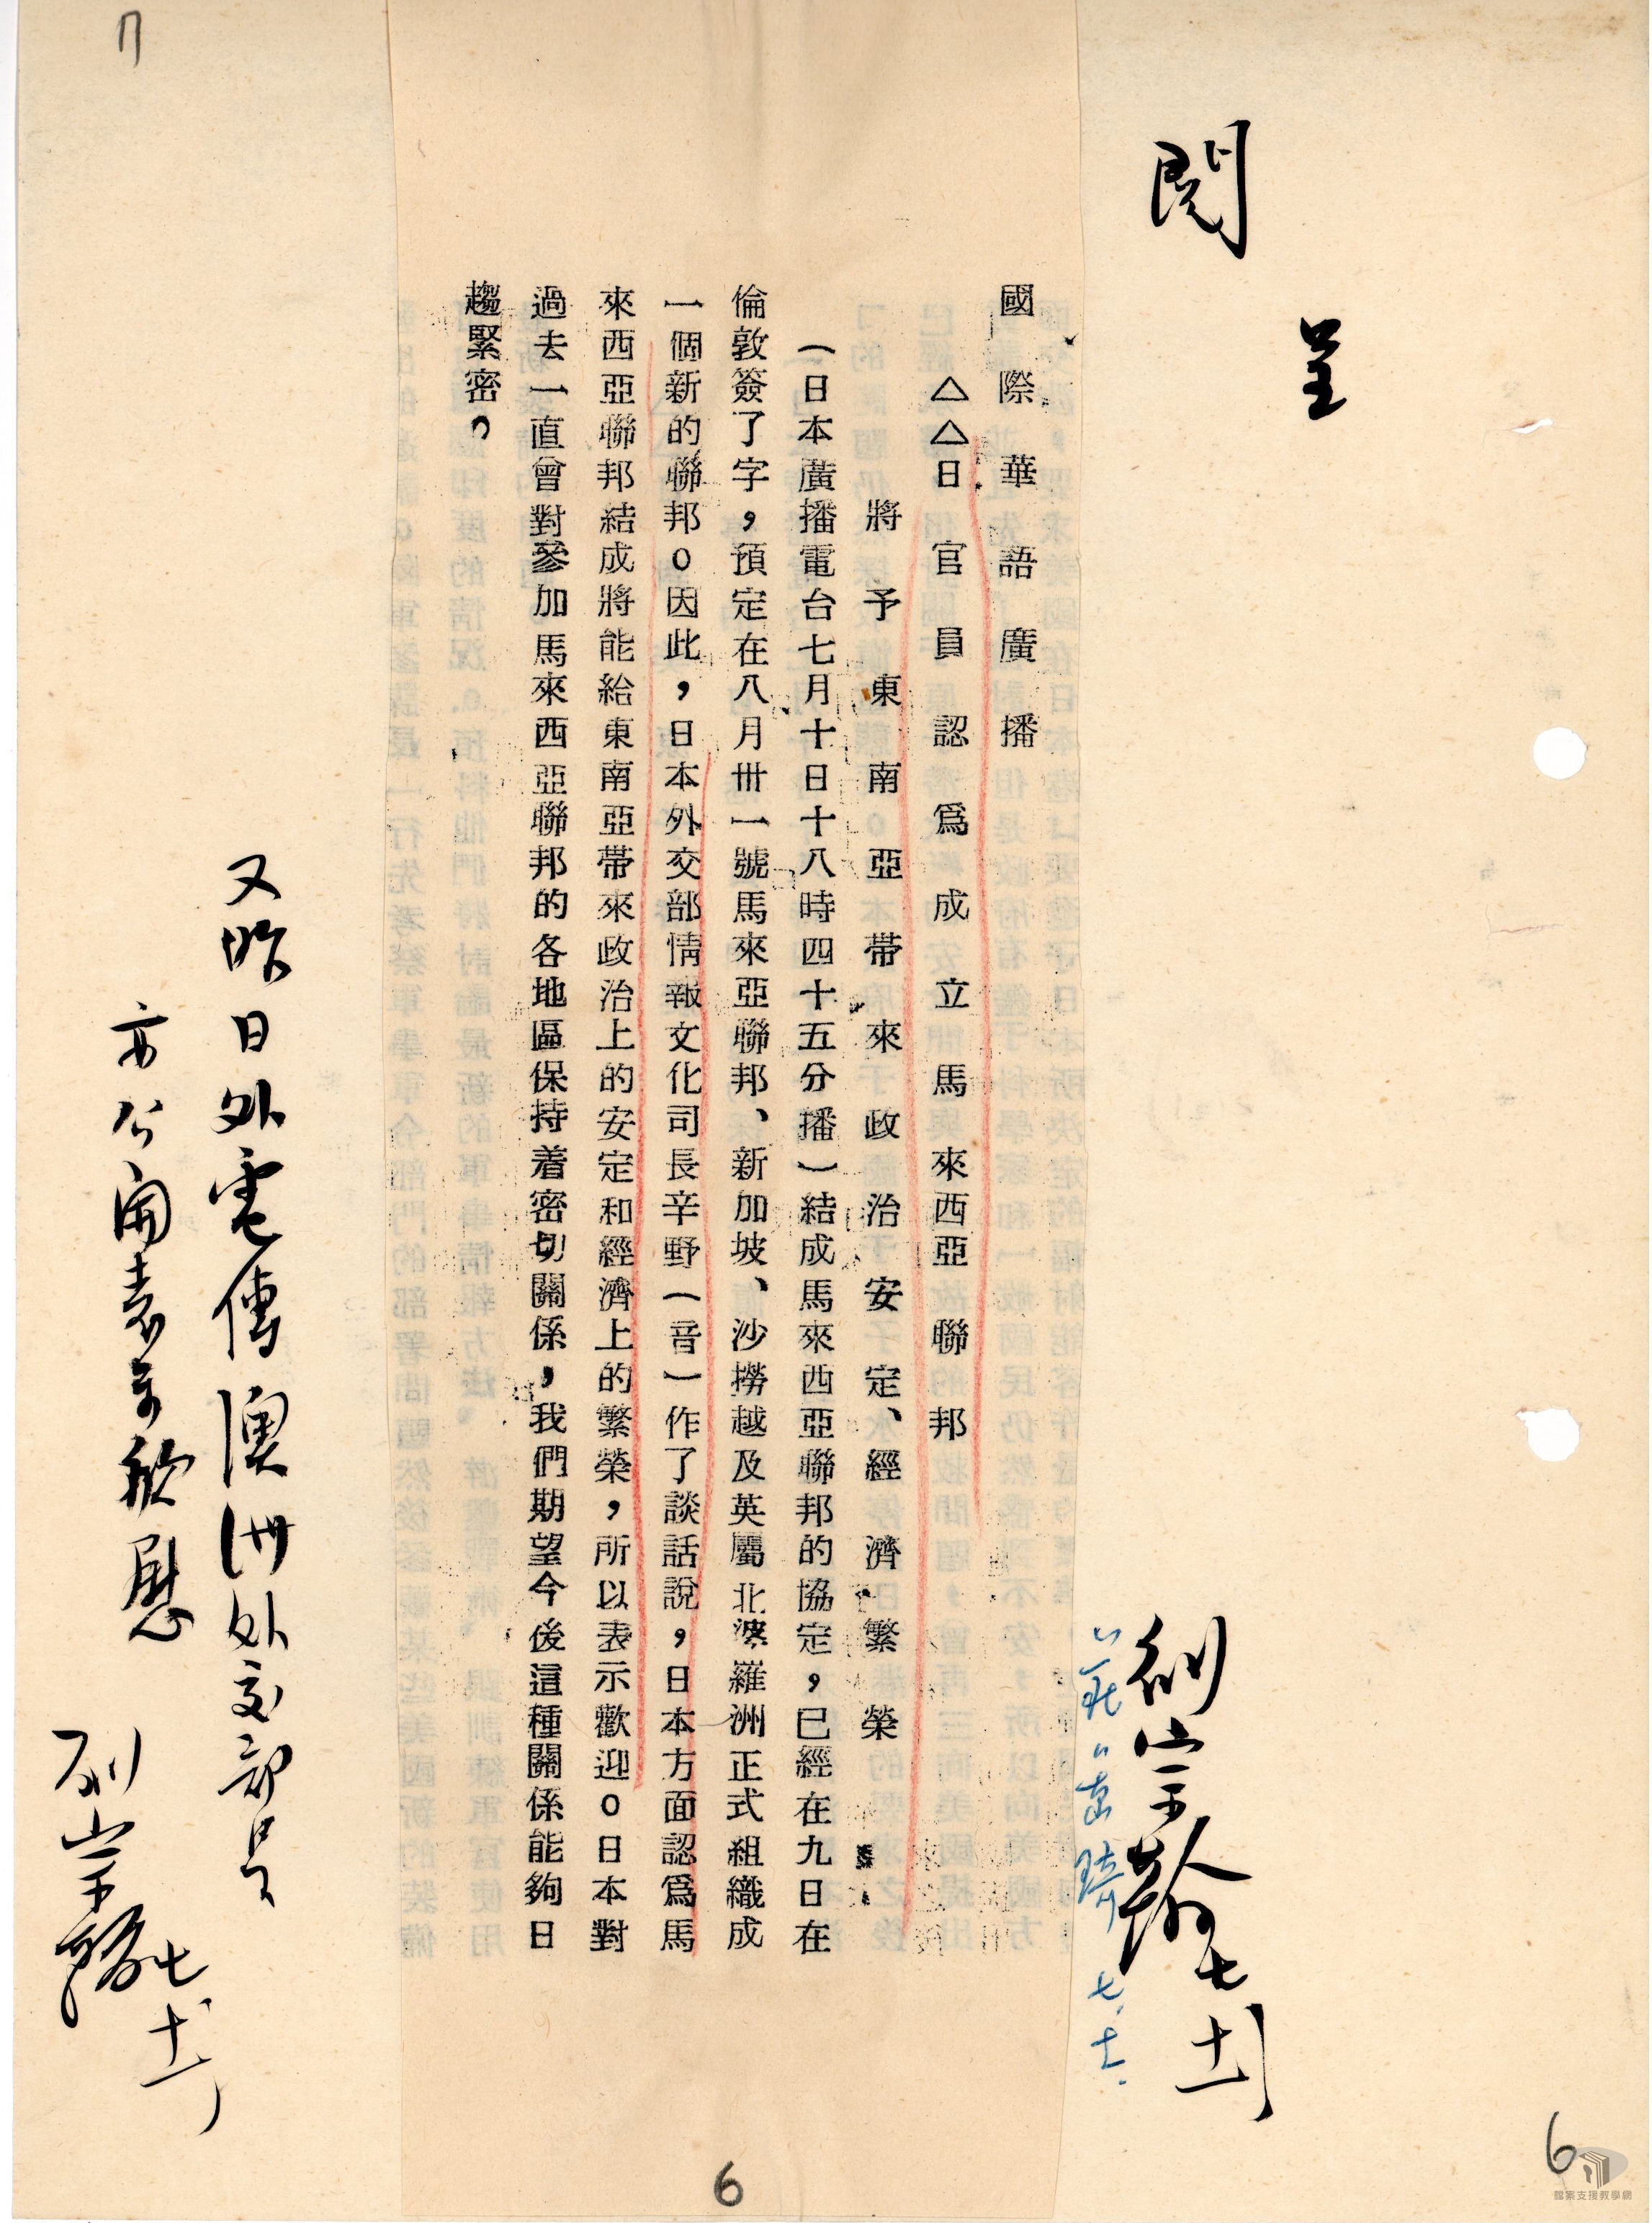 呈
閱
劉宗翰 七、十一
七、十一.
國際華語廣播
△△日官員認爲成立馬來西亞聯邦
將予東南亞帶來政治安定、經濟繁榮
(日本廣播電台七月十日十八時四十五分播)結成馬來西亞聯邦的協定,已經在九日在
倫敦簽了字,預定在八月卅一號馬來亞聯邦、新加坡、沙撈越及英屬北婆羅洲正式組織成
一個新的聯邦。因此,日本外交部情報文化司長辛野(音)作了談話說,日本方面認爲馬
來西亞聯邦結成將能給東南亞帶來政治上的安定和經濟上的繁榮,所以表示歡迎。日本對
過去一直曾對參加馬來西亞聯邦的各地區保持着密切關係,我們期望今後這種關係能夠日
趨緊密。
又昨日外電傳澳洲外交部長
亦公開表示欣慰
劉宗翰 七、十一
6
6
檔案支援教學網